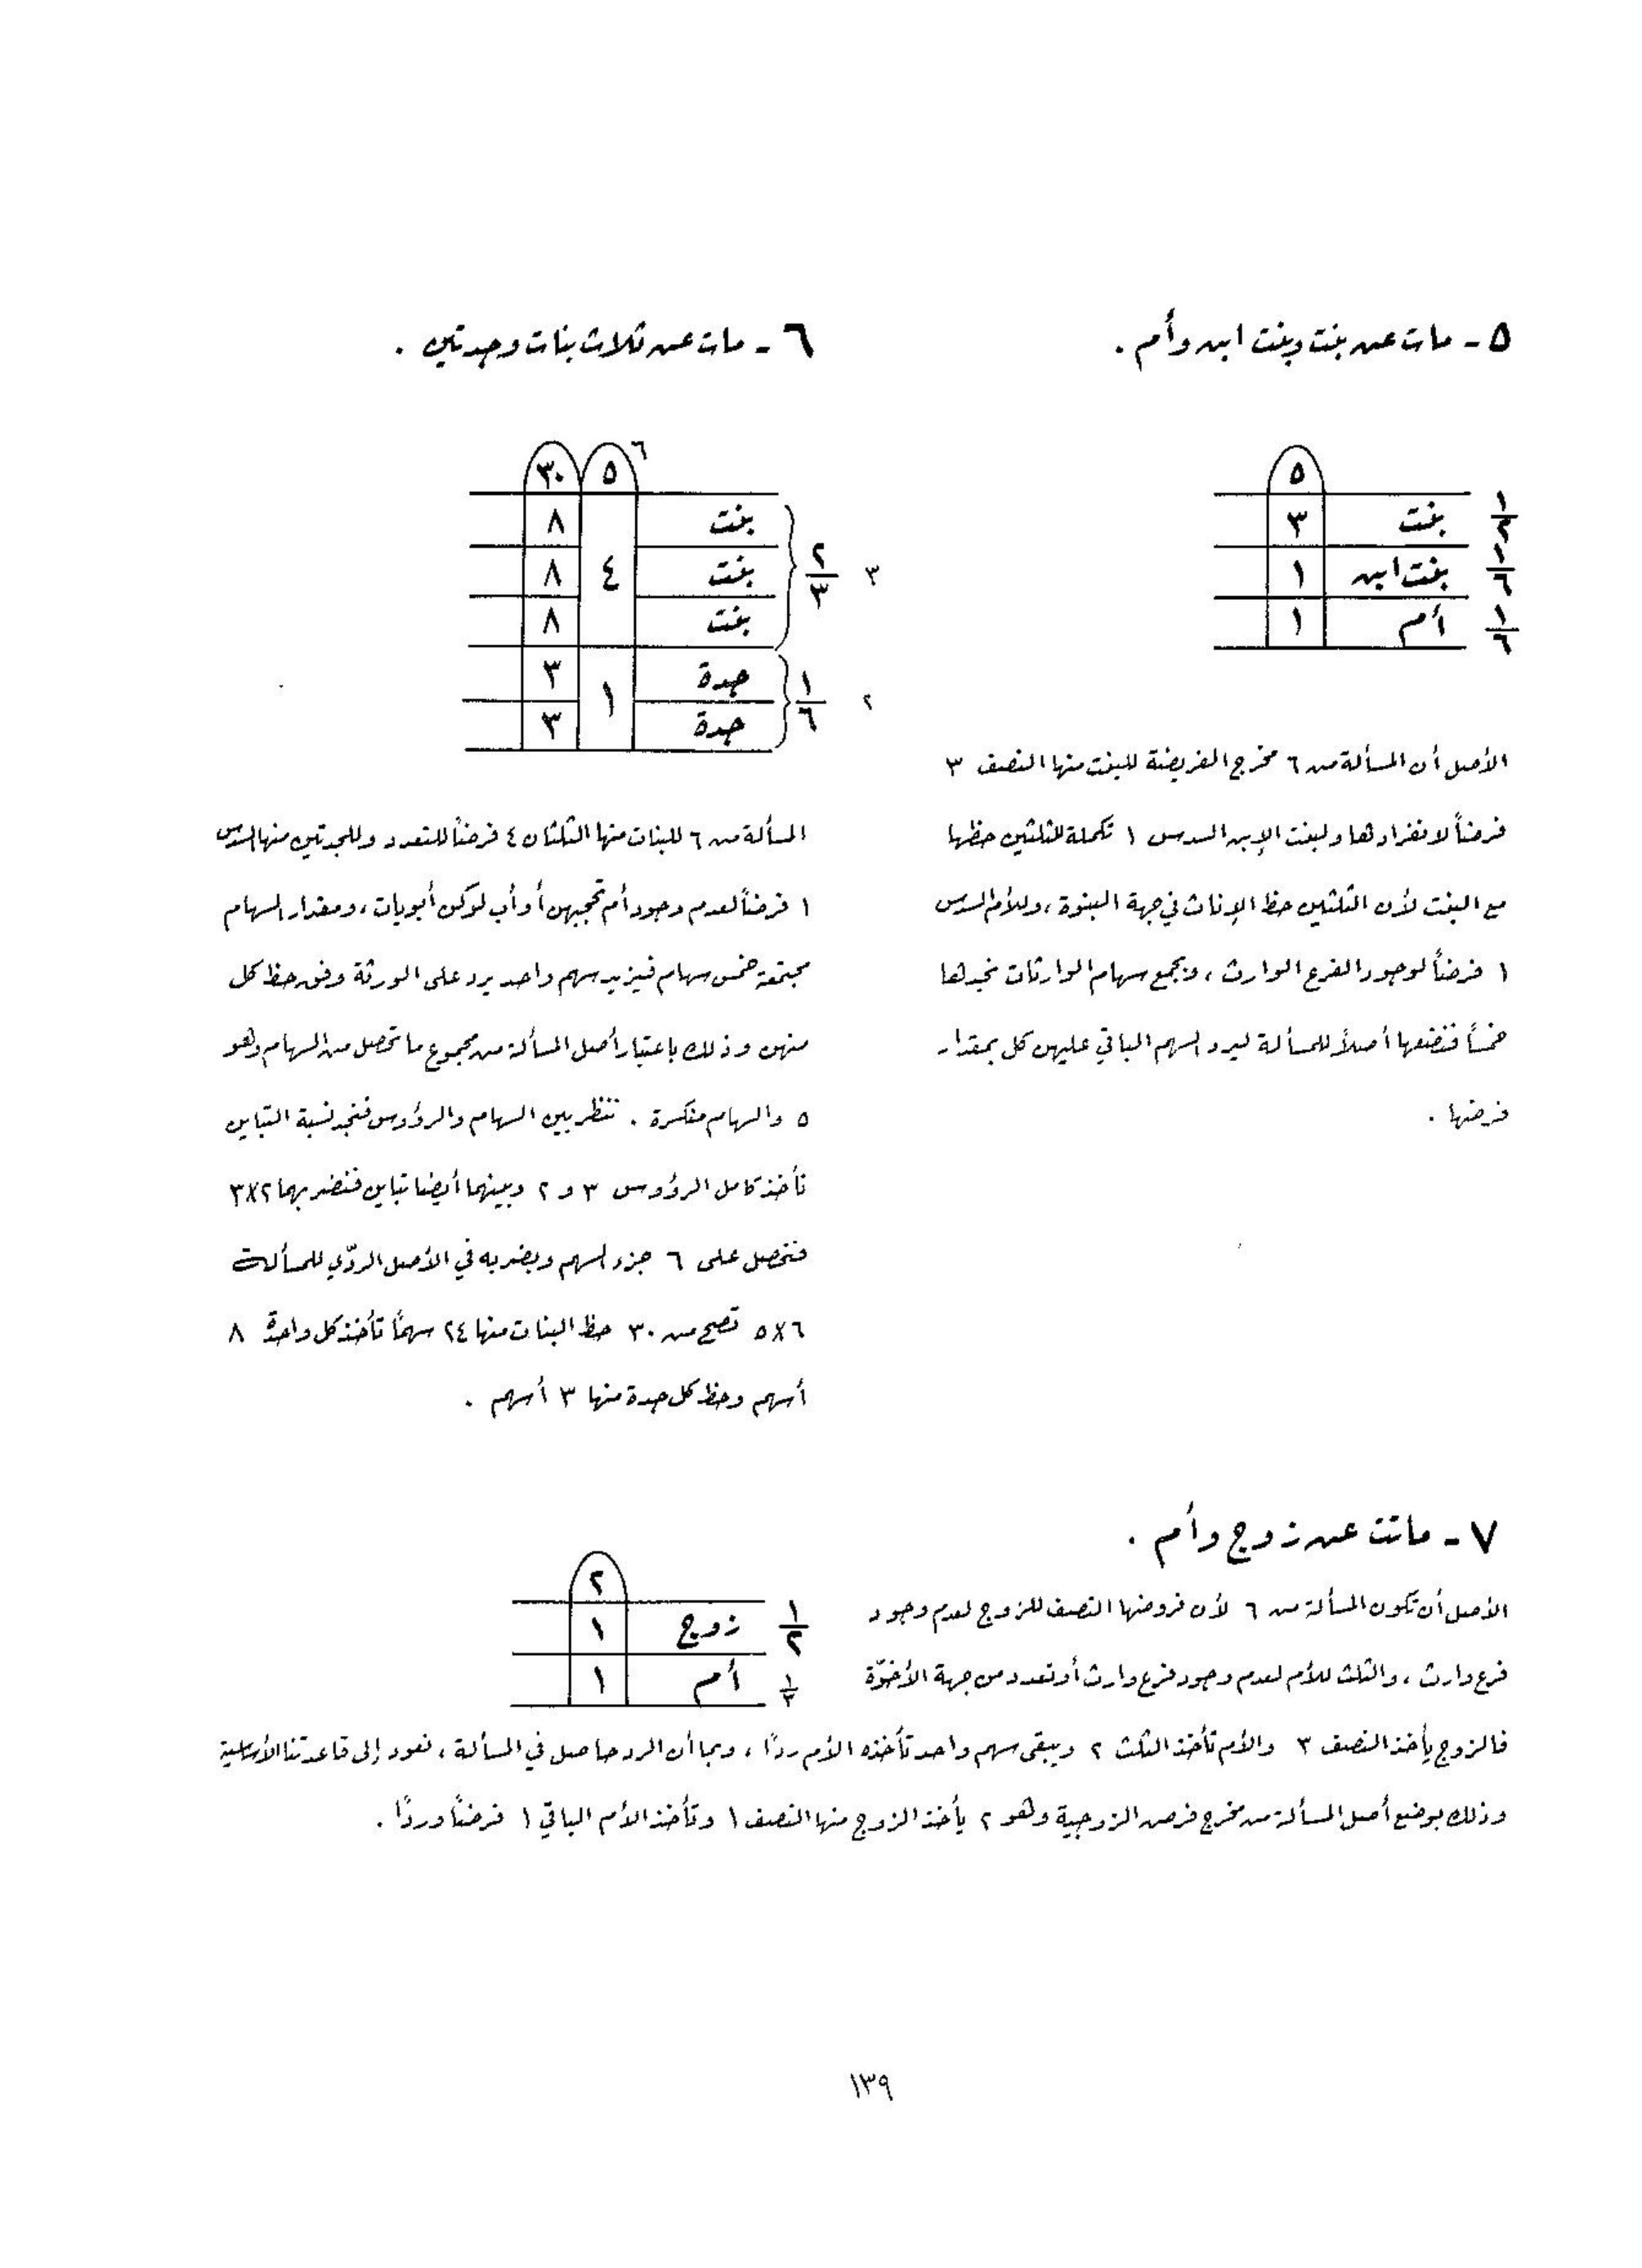 ٥ - مات عن بنت وبنت ابن وأم .
٥
١/٢ بنت ٣
١/٦ بنت ابن ١
١/٦ أم ١
الأصل أن المسألة من ٦ مخرج الفريضة للبنت منها النصف ٣
فرضاً لانفرادها ولبنت الإبن السدس ١ تكملة للثلثين حظها
مع البنت لأن الثلثين حظ الإناث في جهة البنوة ، وللأم السدس
١ فرضاً لوجود الفرع الوارث ، وبجمع سهام الوارثات نجدها
خمساً فنضعها أصلاً للمسألة ليرد السهم الباقي عليهن كل بمقدار
فرضها .
٦ - مات عن ثلاث بنات وجدتين .
٦
٥ ٣٠
٣ ٢/٣ بنت ٤ ٨
بنت ٨
بنت ٨
٢ ١/٦ جدة ١ ٣
جدة ٣
المسألة من ٦ للبنات منها الثلثان ٤ فرضاً للتعدد وللجدتين منها السدس
١ فرضاً لعدم وجود أم تحجبهن أو أب لو كن أبويات ، ومقدار السهام
مجتمعة خمس سهام فيزيد سهم واحد يرد على الورثة وفق حظ كل
منهن وذلك باعتبار أصل المسألة من مجموع ما تحصل من السهام وهو
٥ والسهام منكسرة . ننظر بين السهام والرؤوس فنجد نسبة التباين
نأخذ كامل الرؤوس ٣ و ٢ وبينهما أيضا تباين فنضربهما ٢×٣
فنحصل على ٦ جزء السهم ويضربه في الأصل الردّي للمسألة
٦×٥ تصح من ٣٠ حظ البنات منها ٢٤ سهمًا تأخذ كل واحدة ٨
أسهم وحظ كل جدة منها ٣ أسهم .
٧ - ماتت عن زوج وأم .
٢
١/٢ زوج ١
١/٣ أم ١
الأصل أن تكون المسألة من ٦ لأن فروضها النصف للزوج لعدم وجود
فرع وارث ، والثلث للأم لعدم وجود فرع وارث أو تعدد من جهة الأخوّة
فالزوج يأخذ النصف ٣ والأم تأخذ الثلث ٢ ويبقى سهم واحد تأخذه الأم ردًا ، وبما أن الرد حاصل في المسألة ، نعود إلى قاعدتنا الأساسية
وذلك بوضع أصل المسألة من مخرج فرض الزوجية وهو ٢ يأخذ الزوج منها النصف ١ وتأخذ الأم الباقي ١ فرضًا وردًا .
١٣٩